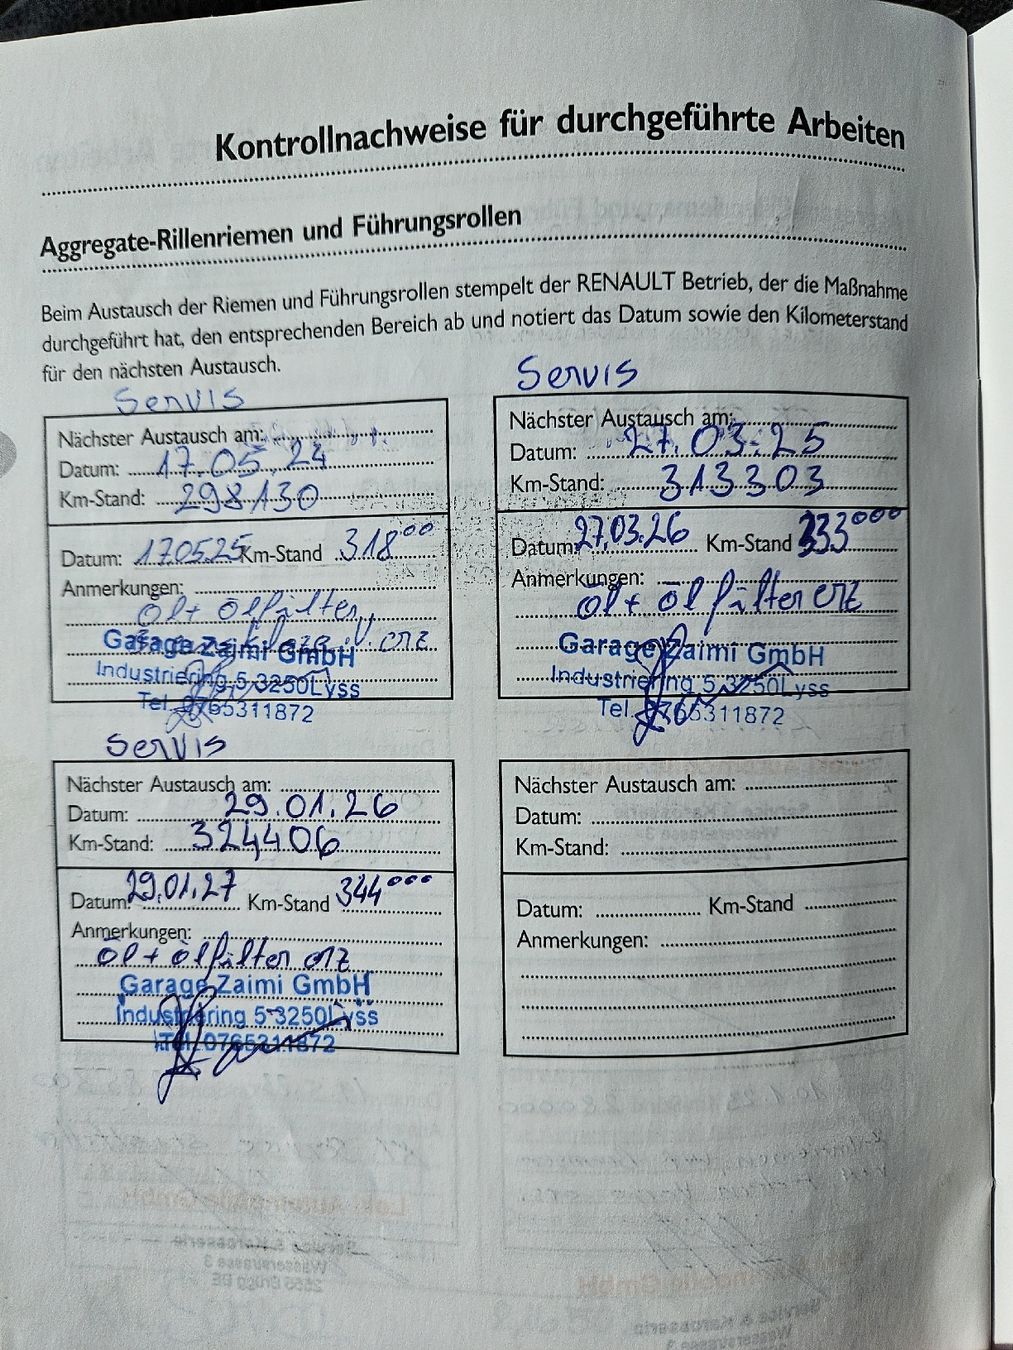 Kontrollnachweise für durchgeführte Arbeiten
Aggregate-Rillenriemen und Führungsrollen
Beim Austausch der Riemen und Führungsrollen stempelt der RENAULT Betrieb, der die Maßnahme
durchgeführt hat, den entsprechenden Bereich ab und notiert das Datum sowie den Kilometerstand
für den nächsten Austausch.
Servis
Nächster Austausch am:
Datum: 17.05.24
Km-Stand: 298130
Datum: 17.05.25 Km-Stand 318°°
Anmerkungen:
Öl + ölfilter
erz
Garage Zaimi GmbH
Industriering 5 3250 Lyss
Tel. 0765311872
Servis
Nächster Austausch am:
Datum: 27.03.25
Km-Stand: 313303
Datum: 27.03.26 Km-Stand 333°°°
Anmerkungen:
Öl + ölfilter erz
Garage Zaimi GmbH
Industriering 5 3250 Lyss
Tel. 0765311872
Servis
Nächster Austausch am:
Datum: 29.01.26
Km-Stand: 324406
Datum: 29.01.27 Km-Stand 344°°°
Anmerkungen:
Öl + ölfilter erz
Garage Zaimi GmbH
Industriering 5 3250 Lyss
Tel. 0765311872
Nächster Austausch am:
Datum:
Km-Stand:
Datum: Km-Stand
Anmerkungen: